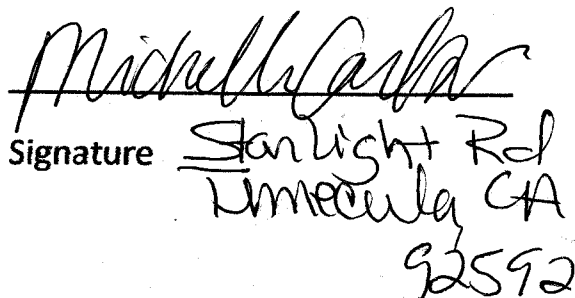 Michelle
Signature Starlight Rd
Temecula, CA
92592